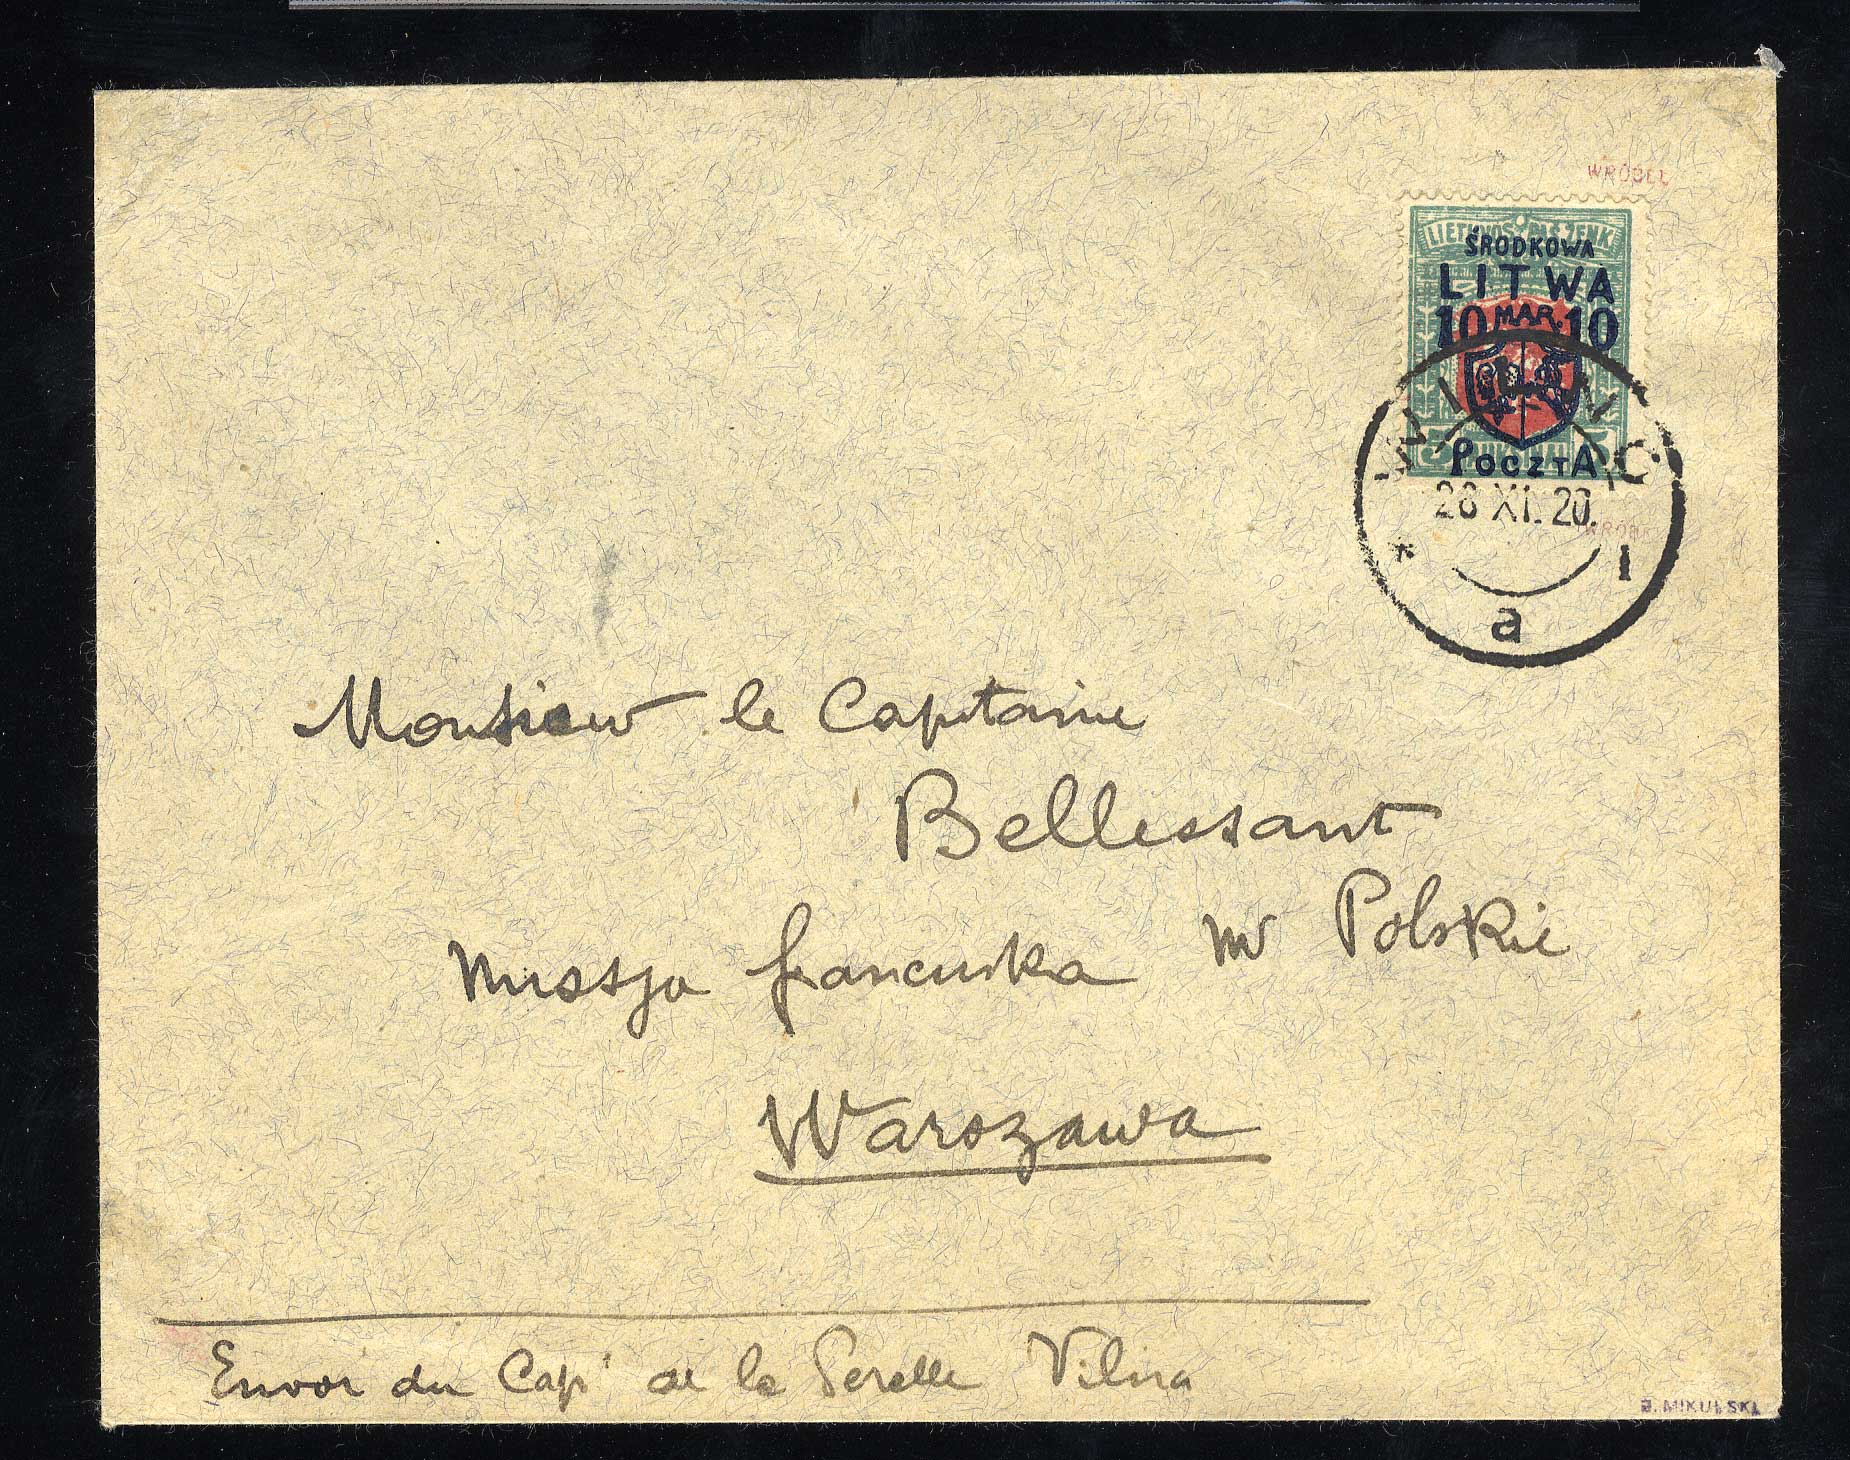 WRÓBEL
LIETUVOS PAŠ ŽENK
ŚRODKOWA
LITWA
10 MAR. 10
POCZTA
WILNO
28 XI. 20.
* 1
a
Monsieur le Capitaine
Bellessant
Missja francuska w Polskie
Warszawa
Envoi du Capᵉ de la Perelle Vilna
B. MIKULSKI